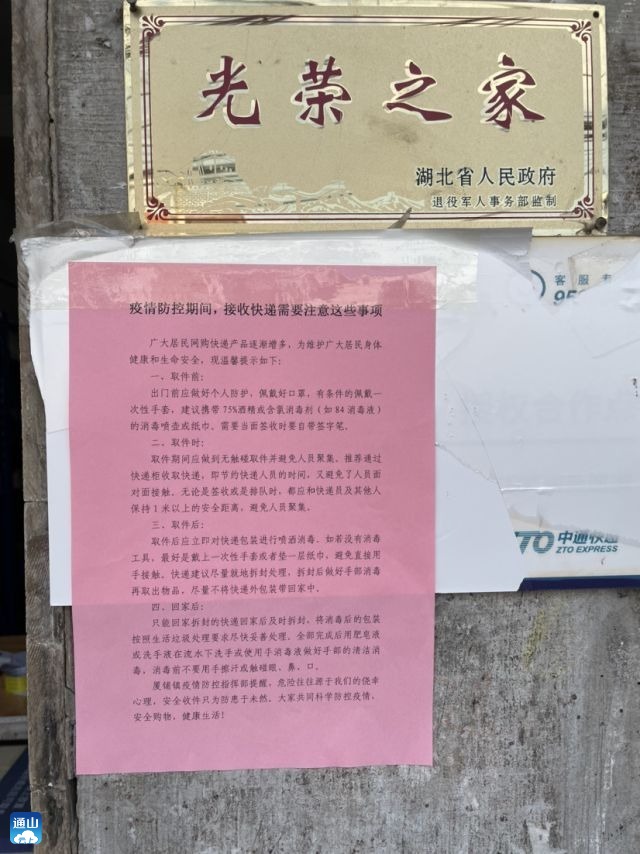 光荣之家
湖北省人民政府
退役军人事务部监制
客服专
95
中通快递
ZTO EXPRESS
疫情防控期间，接收快递需要注意这些事项
广大居民网购快递产品逐渐增多，为维护广大居民身体
健康和生命安全，现温馨提示如下：
一、取件前：
出门前应做好个人防护，佩戴好口罩，有条件的佩戴一
次性手套，建议携带 75%酒精或含氯消毒剂（如 84 消毒液）
的消毒喷壶或纸巾。需要当面签收时要自带签字笔。
二、取件时：
取件期间应做到无触碰取件并避免人员聚集。推荐通过
快递柜收取快递，即节约快递人员的时间，又避免了人员面
对面接触。无论是签收或是排队时，都应和快递员及其他人
保持 1 米以上的安全距离，避免人员聚集。
三、取件后：
取件后应立即对快递包装进行喷洒消毒。如若没有消毒
工具，最好是戴上一次性手套或者垫一层纸巾，避免直接用
手接触。快递建议尽量就地拆封处理，拆封后做好手部消毒
再取出物品，尽量不将快递外包装带回家中。
四、回家后：
只能回家拆封的快递回家后及时拆封，将消毒后的包装
按照生活垃圾处理要求尽快妥善处理。全部完成后用肥皂液
或洗手液在流水下洗手或使用手消毒液做好手部的清洁消
毒，消毒前不要用手擦汗或触碰眼、鼻、口。
厦铺镇疫情防控指挥部提醒，危险往往源于我们的侥幸
心理，安全收件只为防患于未然。大家共同科学防控疫情，
安全购物，健康生活！
通山